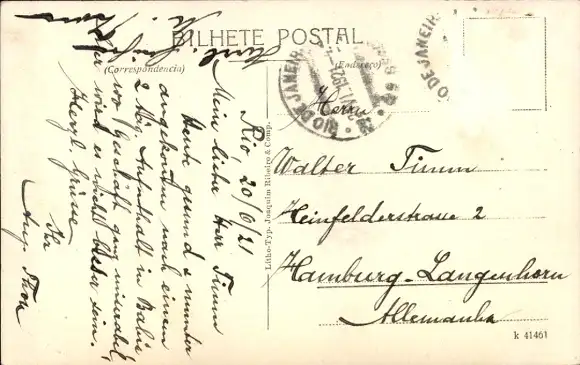 BILHETE POSTAL
(Correspondencia)
(Endereço)
Rio 20/6/21
Mein lieber Herr Timm
Heute gesund & munter
angekommen nach einem
2 Aufenthalt in Bahia
wo Geschäft ganz miserabel
wird es nicht besser sein.
Herzl. Grüsse
Ihr
Aug. Thon
Litho-Typ. Joaquim Ribeiro & Comp.
RIO DE JANEIRO
RIO DE JANEIRO
Herrn
Walter Timm
Heinfelderstrasse 2
Hamburg-Langenhorn
Allemanha
k 41461